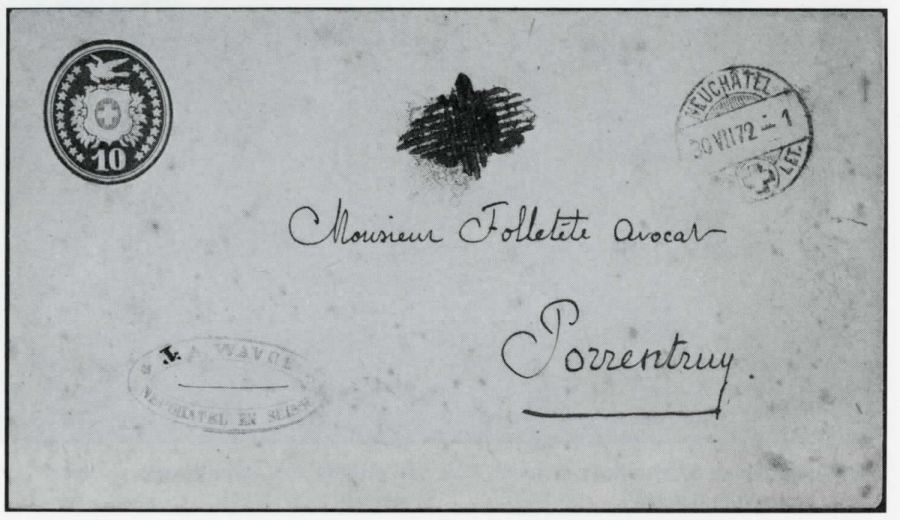 10
NEUCHÂTEL
30 VII 72 – 1
LET.
Monsieur Folletête avocat
Porrentruy.
A. WAVRE
NEUCHATEL EN SUISSE